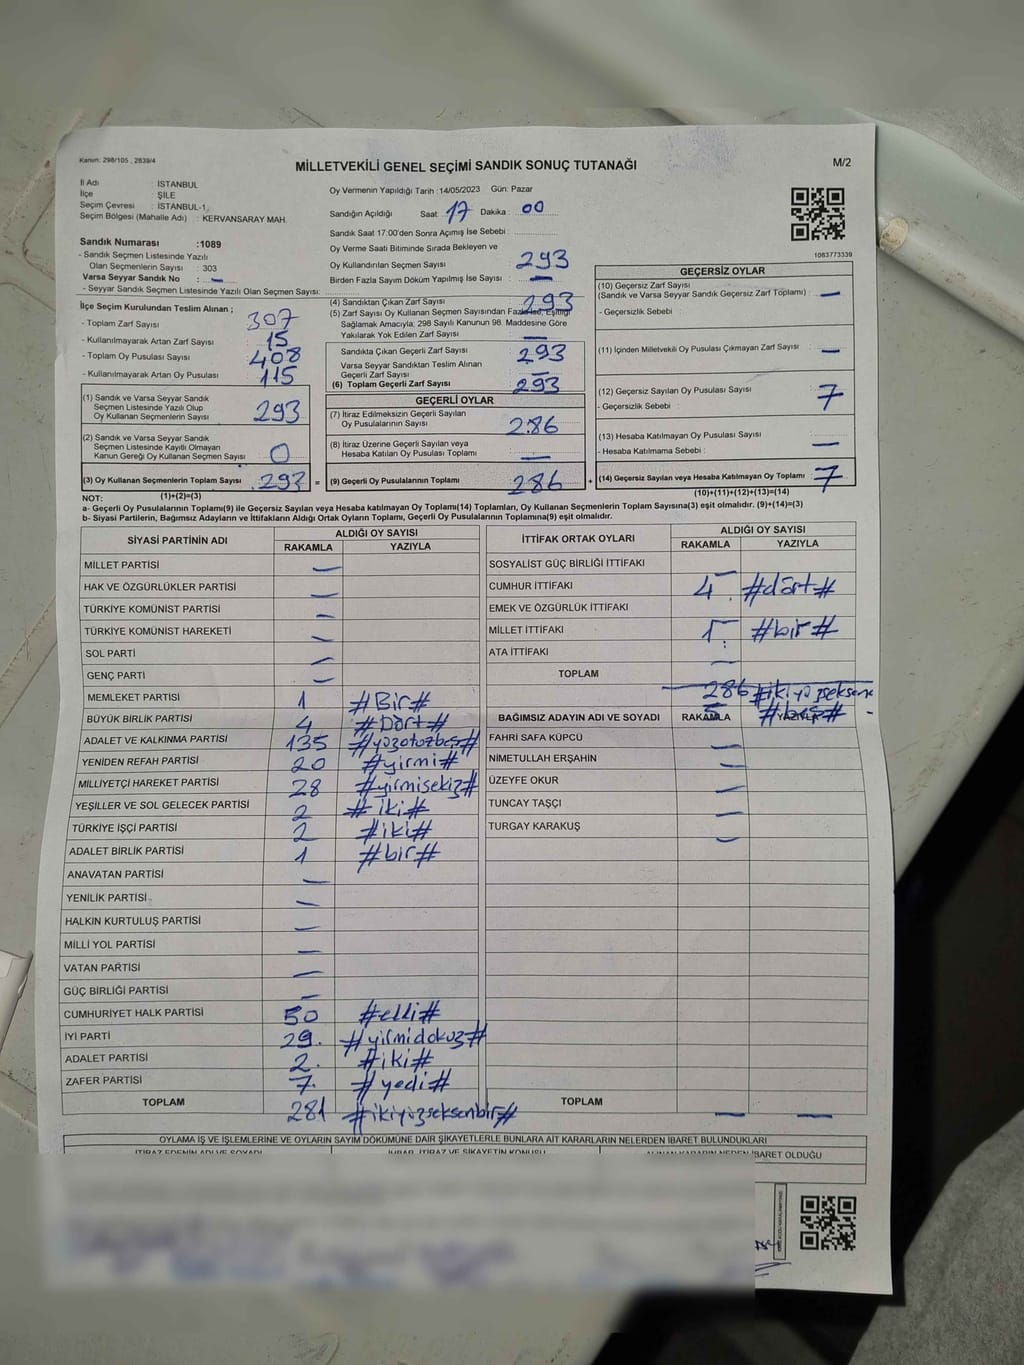 Kanun: 298/105 , 2839/4
MİLLETVEKİLİ GENEL SEÇİMİ SANDIK SONUÇ TUTANAĞI
M/2
İl Adı : İSTANBUL
İlçe : ŞİLE
Seçim Çevresi : İSTANBUL-1
Seçim Bölgesi (Mahalle Adı) : KERVANSARAY MAH.
Sandık Numarası :1089
- Sandık Seçmen Listesinde Yazılı
Olan Seçmenlerin Sayısı : 303
Varsa Seyyar Sandık No : —
- Seyyar Sandık Seçmen Listesinde Yazılı Olan Seçmen Sayısı:
Oy Vermenin Yapıldığı Tarih :14/05/2023 Gün: Pazar
Sandığın Açıldığı Saat: 17 Dakika : 00
Sandık Saat 17:00'den Sonra Açılmış İse Sebebi :
Oy Verme Saati Bitiminde Sırada Bekleyen ve
Oy Kullandırılan Seçmen Sayısı 293
Birden Fazla Sayım Döküm Yapılmış İse Sayısı : —
1083773339
İlçe Seçim Kurulundan Teslim Alınan ;
- Toplam Zarf Sayısı 307
- Kullanılmayarak Artan Zarf Sayısı 15
- Toplam Oy Pusulası Sayısı 408
- Kullanılmayarak Artan Oy Pusulası 115
(1) Sandık ve Varsa Seyyar Sandık
Seçmen Listesinde Yazılı Olup
Oy Kullanan Seçmenlerin Sayısı 293
(2) Sandık ve Varsa Seyyar Sandık
Seçmen Listesinde Kayıtlı Olmayan
Kanun Gereği Oy Kullanan Seçmen Sayısı 0
(3) Oy Kullanan Seçmenlerin Toplam Sayısı 293 =
(1)+(2)=(3)
(4) Sandıktan Çıkan Zarf Sayısı 293
(5) Zarf Sayısı Oy Kullanan Seçmen Sayısından Fazla İse, Eşitliği
Sağlamak Amacıyla; 298 Sayılı Kanunun 98. Maddesine Göre
Yakılarak Yok Edilen Zarf Sayısı —
Sandıkta Çıkan Geçerli Zarf Sayısı 293
Varsa Seyyar Sandıktan Teslim Alınan
Geçerli Zarf Sayısı —
(6) Toplam Geçerli Zarf Sayısı 293
GEÇERLİ OYLAR
(7) İtiraz Edilmeksizin Geçerli Sayılan
Oy Pusulalarının Sayısı 286
(8) İtiraz Üzerine Geçerli Sayılan veya
Hesaba Katılan Oy Pusulası Toplamı —
(9) Geçerli Oy Pusulalarının Toplamı 286 +
GEÇERSİZ OYLAR
(10) Geçersiz Zarf Sayısı
(Sandık ve Varsa Seyyar Sandık Geçersiz Zarf Toplamı) : —
- Geçersizlik Sebebi :
(11) İçinden Milletvekili Oy Pusulası Çıkmayan Zarf Sayısı —
(12) Geçersiz Sayılan Oy Pusulası Sayısı 7
- Geçersizlik Sebebi :
(13) Hesaba Katılmayan Oy Pusulası Sayısı —
- Hesaba Katılmama Sebebi :
(14) Geçersiz Sayılan veya Hesaba Katılmayan Oy Toplamı 7
(10)+(11)+(12)+(13)=(14)
NOT:
a- Geçerli Oy Pusulalarının Toplamı(9) ile Geçersiz Sayılan veya Hesaba Katılmayan Oy Toplamı(14) Toplamları, Oy Kullanan Seçmenlerin Toplam Sayısına(3) eşit olmalıdır. (9)+(14)=(3)
b- Siyasi Partilerin, Bağımsız Adayların ve İttifakların Aldığı Ortak Oyların Toplamı, Geçerli Oy Pusulalarının Toplamına(9) eşit olmalıdır.
SİYASİ PARTİNİN ADI ALDIĞI OY SAYISI
RAKAMLA YAZIYLA
MİLLET PARTİSİ —
HAK VE ÖZGÜRLÜKLER PARTİSİ —
TÜRKİYE KOMÜNİST PARTİSİ —
TÜRKİYE KOMÜNİST HAREKETİ —
SOL PARTİ —
GENÇ PARTİ —
MEMLEKET PARTİSİ 1 #Bir#
BÜYÜK BİRLİK PARTİSİ 4 #Dört#
ADALET VE KALKINMA PARTİSİ 135 #yüzotuzbeş#
YENİDEN REFAH PARTİSİ 20 #yirmi#
MİLLİYETÇİ HAREKET PARTİSİ 28 #yirmisekiz#
YEŞİLLER VE SOL GELECEK PARTİSİ 2 #iki#
TÜRKİYE İŞÇİ PARTİSİ 2 #iki#
ADALET BİRLİK PARTİSİ 1 #bir#
ANAVATAN PARTİSİ —
YENİLİK PARTİSİ —
HALKIN KURTULUŞ PARTİSİ —
MİLLİ YOL PARTİSİ —
VATAN PARTİSİ —
GÜÇ BİRLİĞİ PARTİSİ —
CUMHURİYET HALK PARTİSİ 50 #elli#
İYİ PARTİ 29. #yirmidokuz#
ADALET PARTİSİ 2. #iki#
ZAFER PARTİSİ 7. #yedi#
TOPLAM 281 #ikiyüzseksenbir#
İTTİFAK ORTAK OYLARI ALDIĞI OY SAYISI
RAKAMLA YAZIYLA
SOSYALİST GÜÇ BİRLİĞİ İTTİFAKI —
CUMHUR İTTİFAKI 4. #dört#
EMEK VE ÖZGÜRLÜK İTTİFAKI —
MİLLET İTTİFAKI 1. #bir#
ATA İTTİFAKI —
TOPLAM
286 #ikiyüzseksen
5 #beş#
BAĞIMSIZ ADAYIN ADI VE SOYADI RAKAMLA YAZIYLA
FAHRİ SAFA KÜPCÜ —
NİMETULLAH ERŞAHİN —
ÜZEYFE OKUR —
TUNCAY TAŞÇI —
TURGAY KARAKUŞ —
TOPLAM — —
OYLAMA İŞ VE İŞLEMLERİNE VE OYLARIN SAYIM DÖKÜMÜNE DAİR ŞİKAYETLERLE BUNLARA AİT KARARLARIN NELERDEN İBARET BULUNDUKLARI
İTİRAZ EDENİN ADI VE SOYADI İHBAR, İTİRAZ VE ŞİKAYETİN KONUSU ALINAN KARARIN NEDEN İBARET OLDUĞU